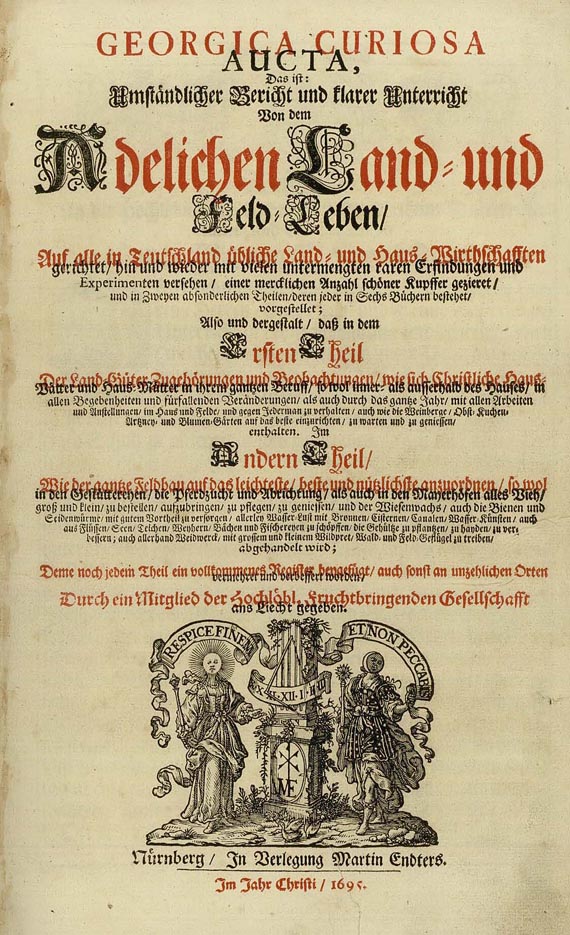 GEORGICA CURIOSA
AUCTA,
Das ist:
Umständlicher Bericht und klarer Unterricht
Von dem
Adelichen Land- und
Feld-Leben/
Auf alle in Teutschland übliche Land- und Haus-Wirthschafften
gerichtet/ hin und wieder mit vielen untermengten raren Erfindungen und
Experimenten versehen/ einer mercklichen Anzahl schöner Kupffer gezieret/
und in Zweyen absonderlichen Theilen/ deren jeder in Sechs Büchern bestehet/
vorgestellet;
Also und dergestalt/ daß in dem
Ersten Theil
Der Land-Güter Zugehörungen und Beobachtungen/ wie sich Christliche Haus-
Vätter und Haus-Mütter in ihrem gantzen Beruff/ so wol inner- als ausserhalb des Hauses/ in
allen Begebenheiten und fürfallenden Veränderungen/ als auch durch das gantze Jahr/ mit allen Arbeiten
und Anstellungen/ im Haus und Felde/ und gegen Jederman zu verhalten/ auch wie die Weinberge/ Obst- Kuchen-
Artzney- und Blumen-Gärten auf das beste einzurichten/ zu warten und zu geniessen/
enthalten. Im
Andern Theil/
Wie der gantze Feldbau auf das leichteste/ beste und nützlichste anzuordnen/ so wol
in den Gestüttereyen/ die Pferdzucht und Abrichtung/ als auch in den Mayerhöfen alles Vieh/
groß und klein/ zu bestellen/ aufzubringen/ zu pflegen/ zu geniessen/ und der Wiesenwachs/ auch die Bienen und
Seidenwürme/ mit gutem Vortheil zu versorgen/ allerley Wasser-Lust mit Brunnen/ Cisternen/ Canalen/ Wasser-Künsten/ auch
aus Flüssen/ Seen/ Teichen/ Weyhern/ Bächen und Fischereyen zu schöpffen/ die Gehültze zu pflantzen/ zu hayden/ zu ver-
bessern; auch allerhand Weidwerck/ mit grossem und kleinem Wildpret/ Wald- und Feld-Geflügel zu treiben/
abgehandelt wird;
Deme noch jedem Theil ein vollkommenes Register beygefügt/ auch sonst an unzehlichen Orten
vermehret und verbessert worden/
Durch ein Mitglied der Hochlöbl. Fruchtbringenden Gesellschafft
ans Liecht gegeben.
RESPICE FINEM
ET NON PECCABIS
XII I
ME
Nürnberg/ In Verlegung Martin Endters.
Im Jahr Christi/ 1695.